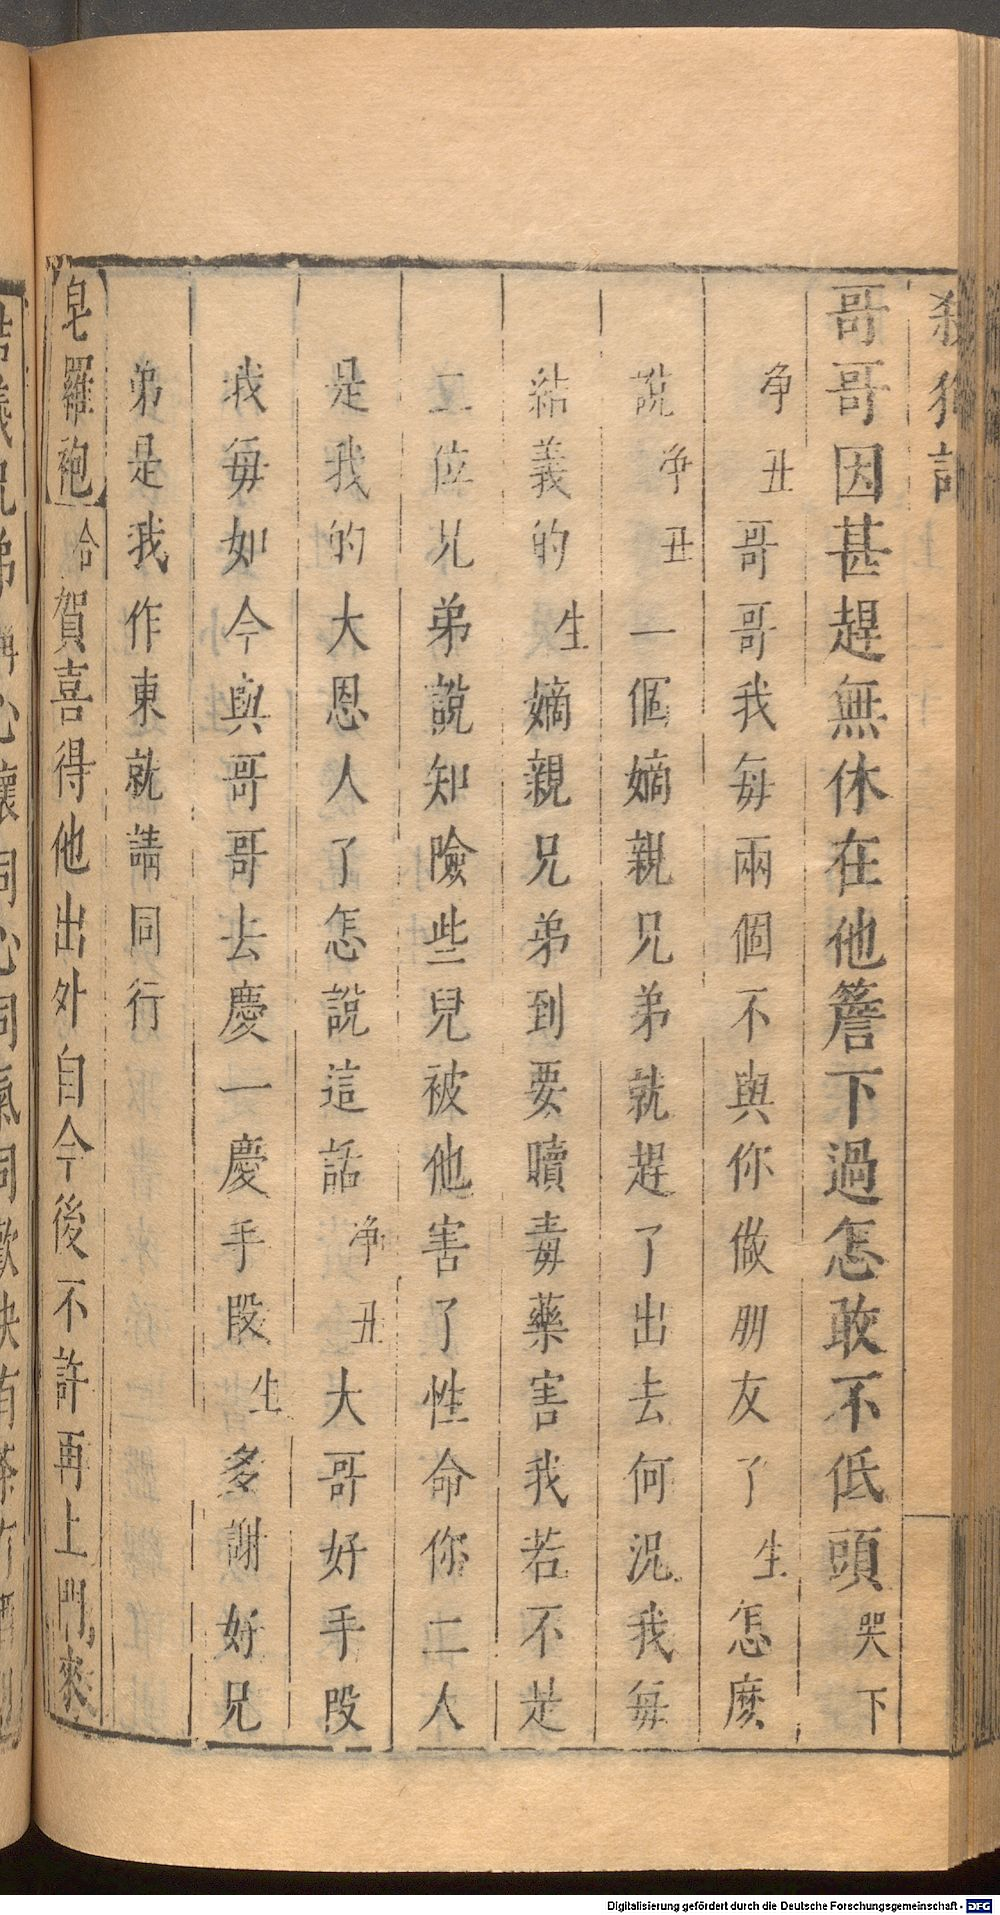 殺狗記
哥哥因甚趕無休在他簷下過怎敢不低頭哭下
净丑哥哥我每兩個不與你做朋友了生怎麽
說净丑一個嫡親兄弟就趕了出去何況我每
結義的生嫡親兄弟到要贖毒藥害我若不是
二位兄弟說知險些兒被他害了性命你二人
是我的大恩人了怎說這話净丑大哥好手段
我每如今與哥哥去慶一慶手段生多謝好兄
弟是我作東就請同行
【皂羅袍】合賀喜得他出外自今後不許再上門來
Digitalisierung gefördert durch die Deutsche Forschungsgemeinschaft - DFG